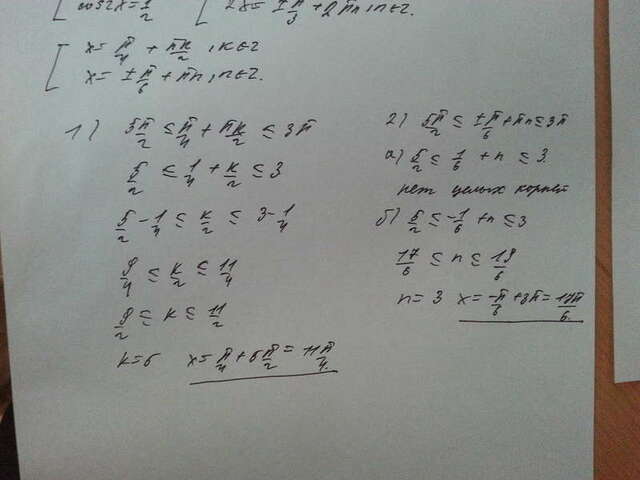 [ cos2x = 1/2   [ 2x = ±π/3 + 2πn, n∈Z.
[ x = π/4 + πk/2, k∈Z
x = ±π/6 + πn, n∈Z.
1) 5π/2 ≤ π/4 + πk/2 ≤ 3π
5/2 ≤ 1/4 + k/2 ≤ 3
5/2 - 1/4 ≤ k/2 ≤ 3 - 1/4
9/4 ≤ k/2 ≤ 11/4
9/2 ≤ k ≤ 11/2
k = 5   x = π/4 + 5π/2 = 11π/4.
2) 5π/2 ≤ ±π/6 + πn ≤ 3π
а) 5/2 ≤ 1/6 + n ≤ 3
нет целых корней
б) 5/2 ≤ -1/6 + n ≤ 3
17/6 ≤ n ≤ 19/6
n = 3   x = -π/6 + 3π = 17π/6.